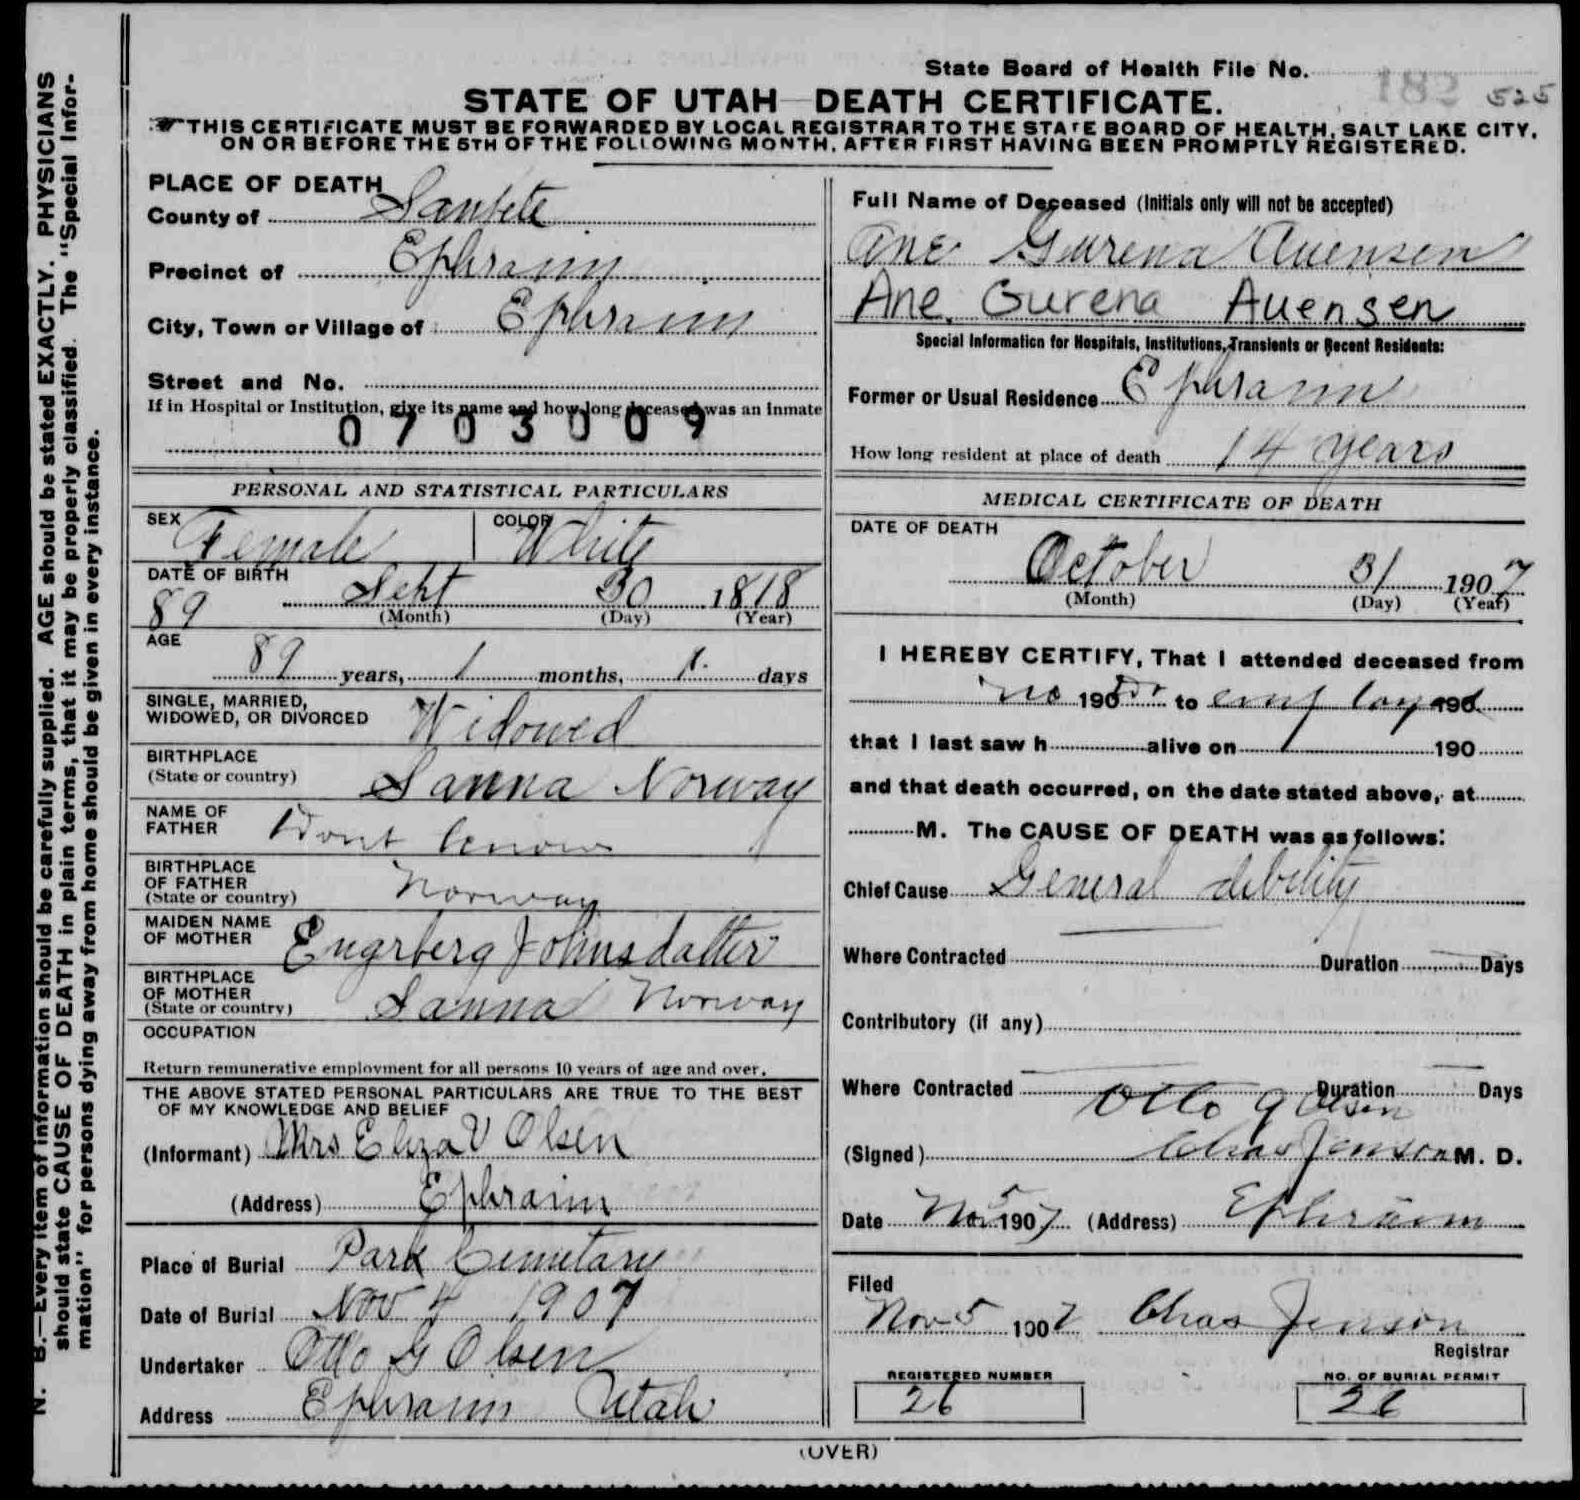 State Board of Health File No. 182 525
STATE OF UTAH—DEATH CERTIFICATE.
THIS CERTIFICATE MUST BE FORWARDED BY LOCAL REGISTRAR TO THE STATE BOARD OF HEALTH, SALT LAKE CITY,
ON OR BEFORE THE 5TH OF THE FOLLOWING MONTH, AFTER FIRST HAVING BEEN PROMPTLY REGISTERED.
N. B.—Every item of information should be carefully supplied. AGE should be stated EXACTLY. PHYSICIANS
should state CAUSE OF DEATH in plain terms, that it may be properly classified. The "Special Infor-
mation" for persons dying away from home should be given in every instance.
PLACE OF DEATH
County of Sanpete
Precinct of Ephraim
City, Town or Village of Ephraim
Street and No.
If in Hospital or Institution, give its name and how long deceased was an inmate
0703009
PERSONAL AND STATISTICAL PARTICULARS
SEX Female COLOR White
DATE OF BIRTH
89 Sept 30 1818
(Month) (Day) (Year)
AGE
89 years, 1 months, 1 days
SINGLE, MARRIED,
WIDOWED, OR DIVORCED Widowed
BIRTHPLACE
(State or country) Sanna Norway
NAME OF
FATHER Dont know
BIRTHPLACE
OF FATHER
(State or country) Norway
MAIDEN NAME
OF MOTHER Engrberg Johnsdatter
BIRTHPLACE
OF MOTHER
(State or country) Sanna Norway
OCCUPATION
Return remunerative employment for all persons 10 years of age and over.
THE ABOVE STATED PERSONAL PARTICULARS ARE TRUE TO THE BEST
OF MY KNOWLEDGE AND BELIEF
(Informant) Mrs Eliza V Olsen
(Address) Ephraim
Place of Burial Park Cemetary
Date of Burial Nov 4 1907
Undertaker Otto G Olsen
Address Ephraim Utah
Full Name of Deceased (Initials only will not be accepted)
Ane Gurena Auensen
Ane. Gurena Auensen
Special Information for Hospitals, Institutions, Transients or Recent Residents:
Former or Usual Residence Ephraim
How long resident at place of death 14 years
MEDICAL CERTIFICATE OF DEATH
DATE OF DEATH
October 31 1907
(Month) (Day) (Year)
I HEREBY CERTIFY, That I attended deceased from
no 190 Dr to employed 190
that I last saw h alive on 190
and that death occurred, on the date stated above, at
M. The CAUSE OF DEATH was as follows:
Chief Cause General debility
Where Contracted Duration Days
Contributory (if any)
Where Contracted Duration Days
Otto G Olsen
(Signed) Chas Jenson M. D.
Date Nov 5 1907 (Address) Ephraim
Filed
Nov 5 1907 Chas Jenson
Registrar
REGISTERED NUMBER
26
NO. OF BURIAL PERMIT
26
(OVER)